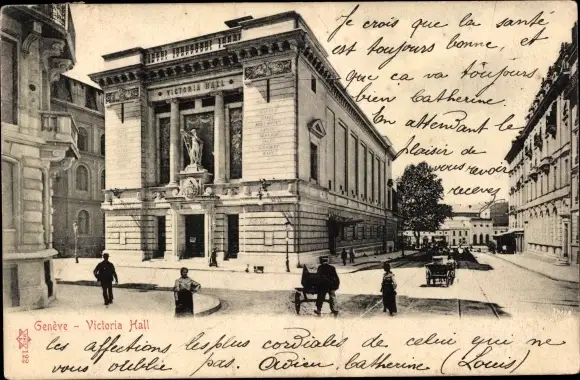 Je crois que la santé
est toujours bonne, et
que ça va toujours
bien Catherine
En attendant le
plaisir de
vous revoir
recevez
VICTORIA HALL
Genève - Victoria Hall
les affections les plus cordiales de celui qui ne
vous oublie pas. Adieu, Catherine (Louis)